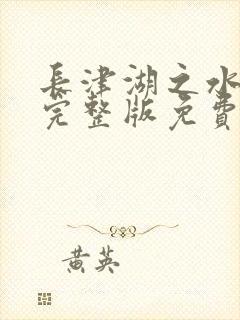 長津湖之水
完整版免費
黃英